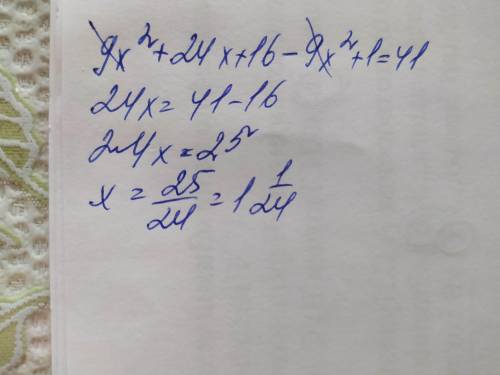 9x² + 24x + 16 - 9x² + 1 = 41
24x = 41 - 16
24x = 25
x = 25/24 = 1 1/24